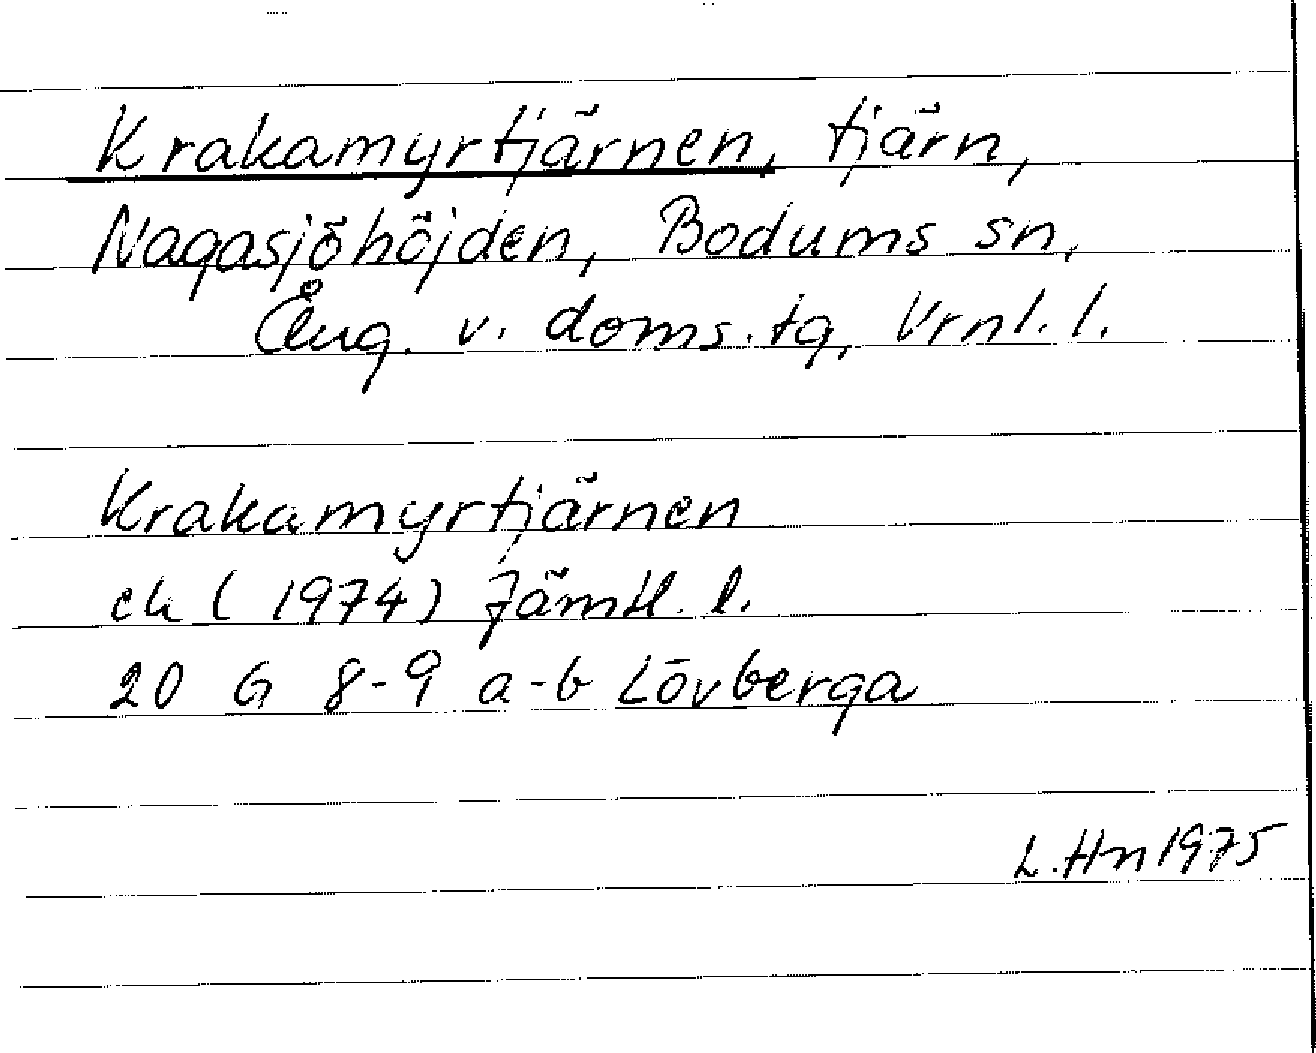 Krakamyrtjärnen, tjärn,
Nagasjöhöjden, Bodums sn,
Ång. v. doms.tg, Vrnl. l.
Krakamyrtjärnen
ek (1974) Jämtl. l.
20 G 8-9 a-b Lövberga
L.Hn 1975